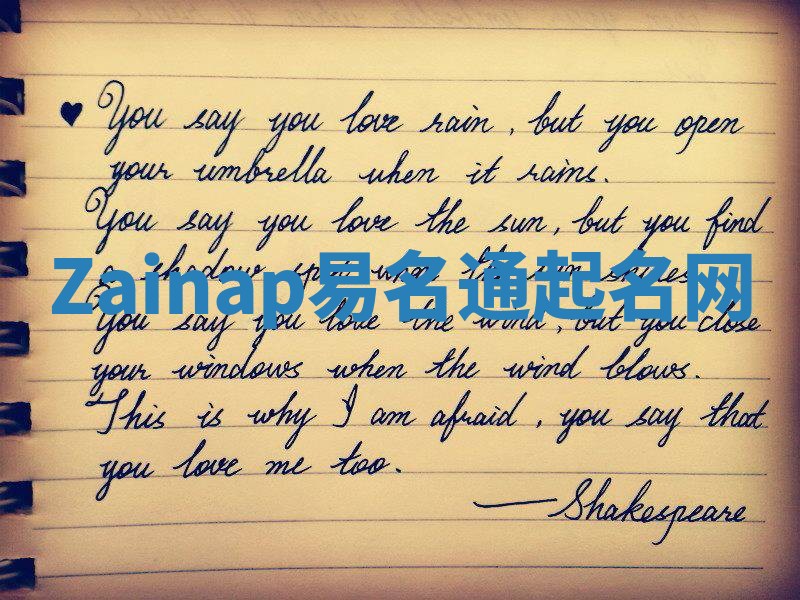 You say you love rain, but you open
your umbrella when it rains.
You say you love the sun, but you find
a shadow spot when the sun shines.
Zainap易名通起名网
You say you love the wind, but you close
your windows when the wind blows.
This is why I am afraid, you say that
you love me too.
—Shakespeare